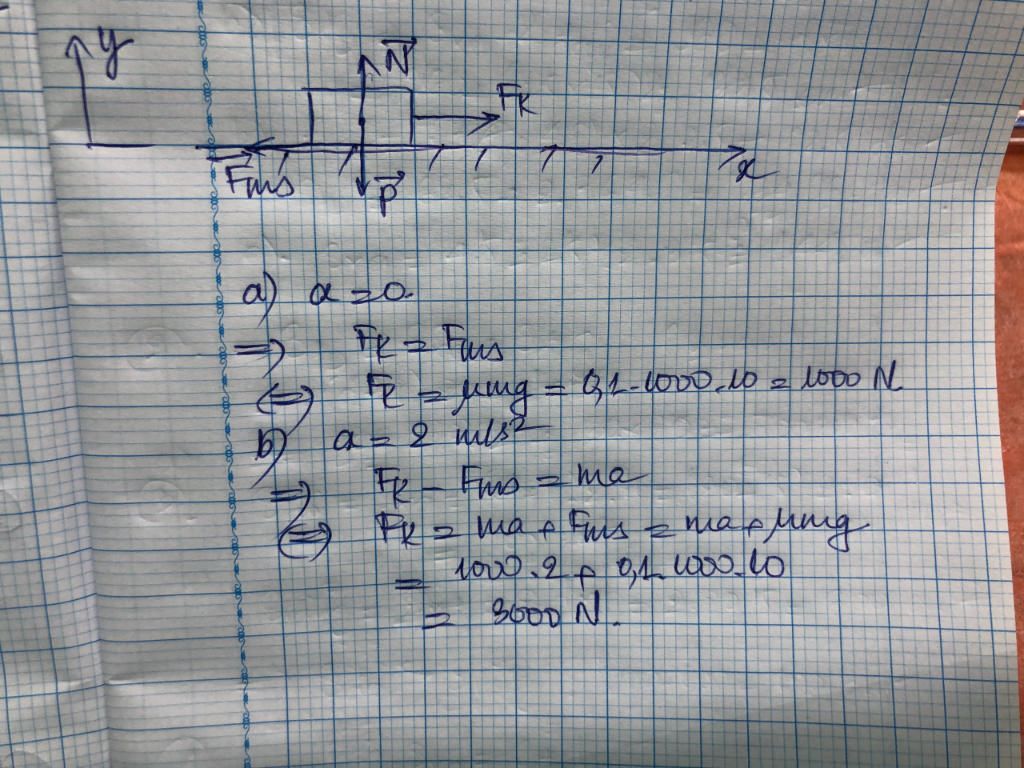 y
N⃗
Fk
Fms
P⃗
x
a) a = 0.
=> Fk = Fms
<=> Fk = μmg = 0,1.1000.10 = 1000 N
b) a = 2 m/s²
=> Fk - Fms = ma
<=> Fk = ma + Fms = ma + μmg
= 1000.2 + 0,1.1000.10
= 3000 N.